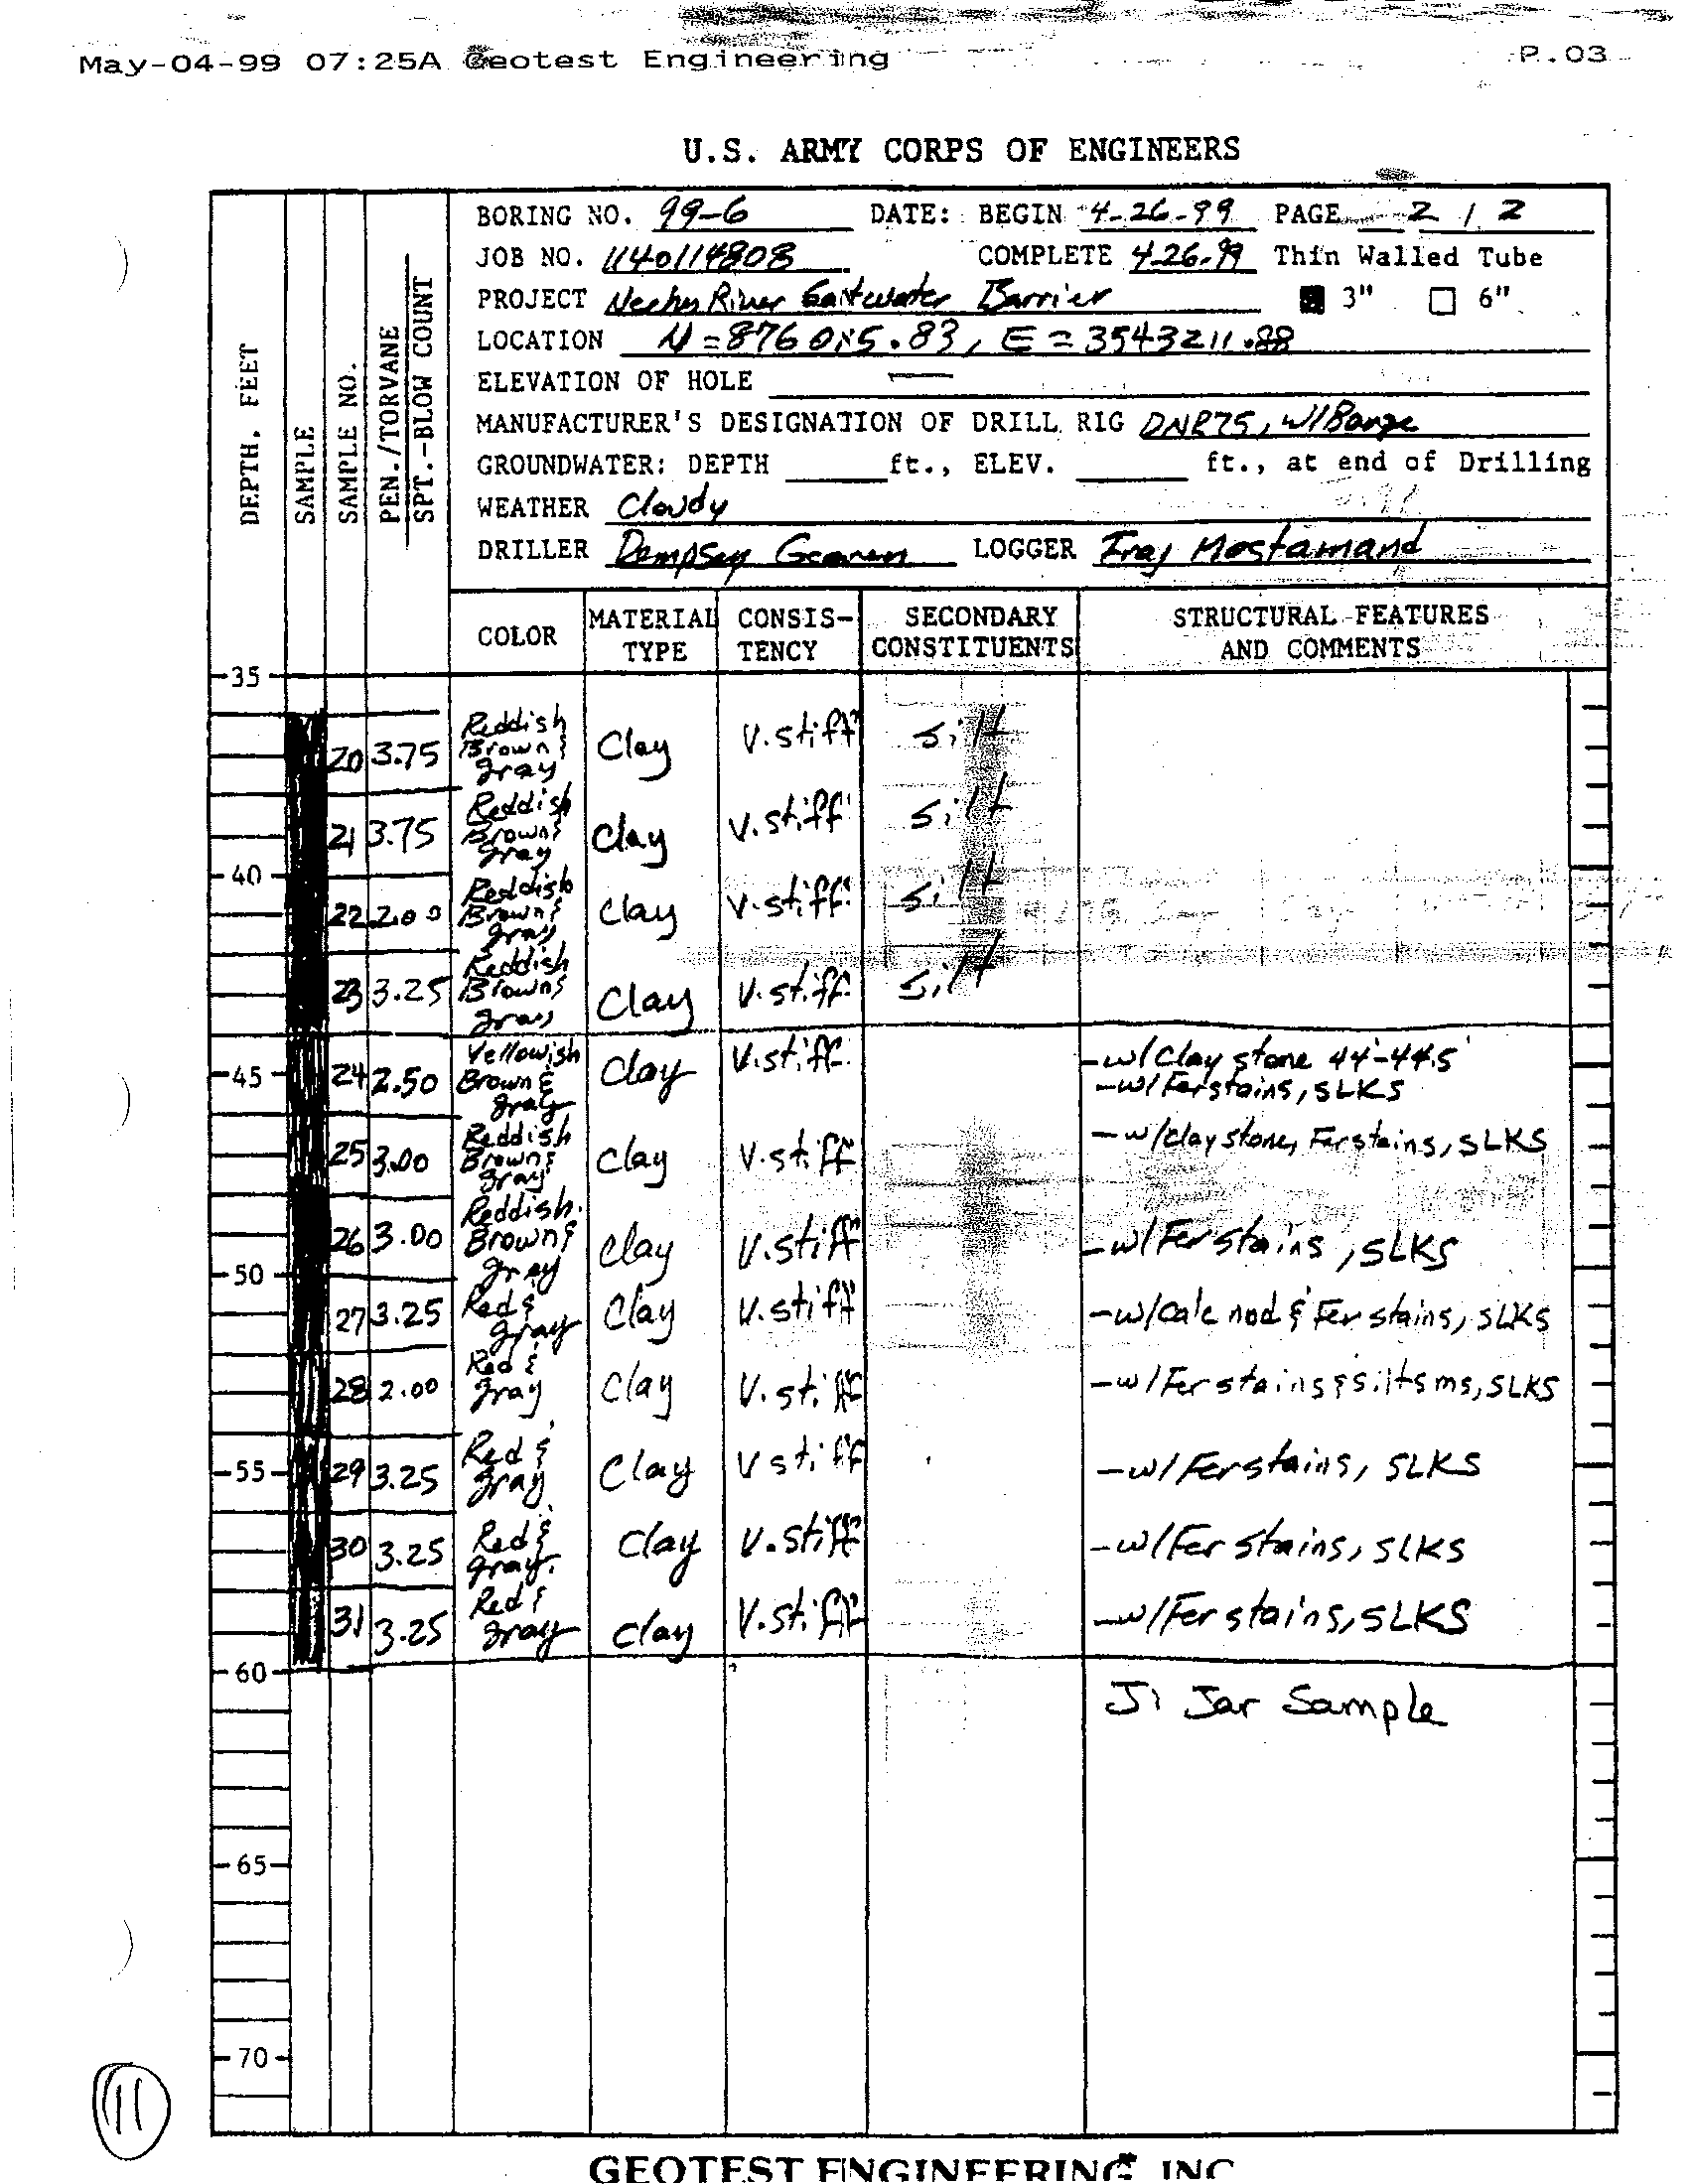 May-04-99 07:25A Geotest Engineering P.03
U.S. ARMY CORPS OF ENGINEERS
BORING NO. 99-6 DATE: BEGIN 4-26-99 PAGE 2 / 2
JOB NO. 1140114808 COMPLETE 4-26-99 Thin Walled Tube
PROJECT Neches River Saltwater Barrier 3" 6"
LOCATION N = 8760 5.83, E = 3543211.88
ELEVATION OF HOLE —
MANUFACTURER'S DESIGNATION OF DRILL RIG DNR75, W/Barge
GROUNDWATER: DEPTH ft., ELEV. ft., at end of Drilling
WEATHER Cloudy
DRILLER Dempsey LOGGER Iraj Mostamand
DEPTH, FEET
SAMPLE
SAMPLE NO.
PEN./TORVANE
SPT.-BLOW COUNT
COLOR MATERIAL TYPE CONSIS-TENCY SECONDARY CONSTITUENTS STRUCTURAL FEATURES AND COMMENTS
35
20 3.75 Reddish Brown & gray Clay V.stiff Silt
21 3.75 Reddish Brown & gray Clay V.stiff Silt
40
22 2.00 Reddish Brown & gray Clay V.stiff Silt
23 3.25 Reddish Brown & gray Clay V.stiff Silt
45
24 2.50 Yellowish Brown & gray Clay V.stiff -w/Clay stone 44'-44.5'
-w/Fer stains, SLKS
25 3.00 Reddish Brown & gray Clay V.stiff -w/clay stone, Fer stains, SLKS
26 3.00 Reddish Brown & gray Clay V.stiff -w/Fer stains, SLKS
50
27 3.25 Red & gray Clay V.stiff -w/calc nod & Fer stains, SLKS
28 2.00 Red & gray Clay V.stiff -w/Fer stains & silt sms, SLKS
55
29 3.25 Red & gray Clay V stiff -w/Fer stains, SLKS
30 3.25 Red & gray Clay V.stiff -w/Fer stains, SLKS
31 3.25 Red & gray Clay V.stiff -w/Fer stains, SLKS
60
J: Jar Sample
65
70
11
GEOTEST ENGINEERING, INC